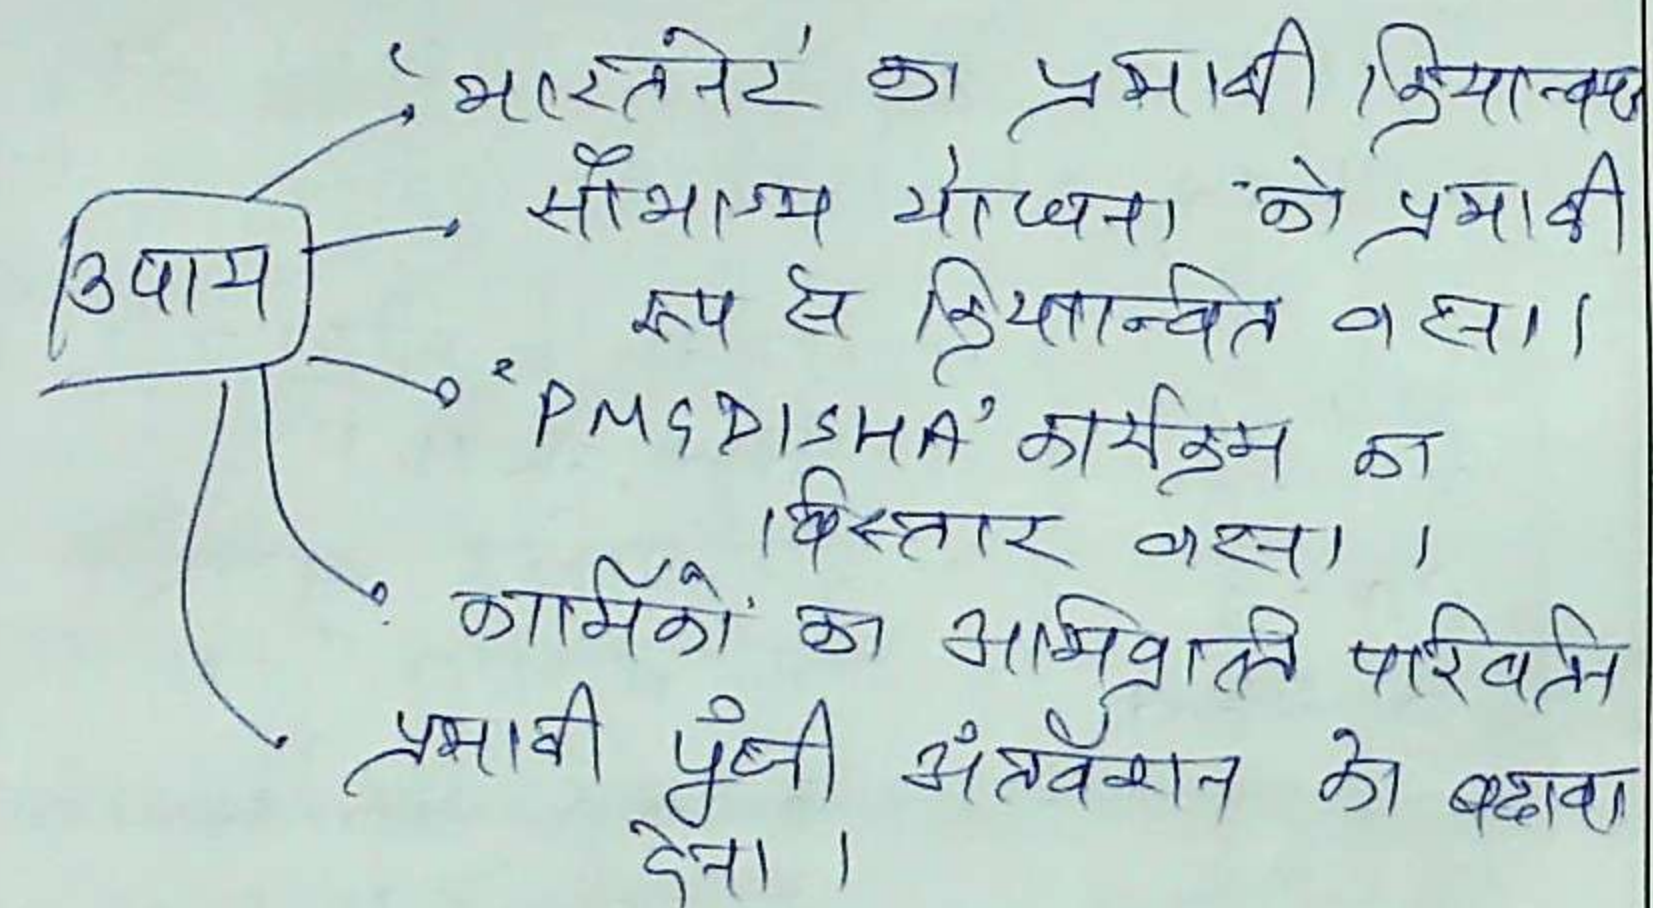 'भारतनेट' का प्रभावी क्रियान्वयन
सौभाग्य योजना को प्रभावी
उपाय
रूप से क्रियान्वित करना।
'PMGDISHA' कार्यक्रम का
विस्तार करना।
कार्मिकों का अभिवृत्ति परिवर्तन
प्रभावी पूँजी अंतर्वेशन को बढ़ावा
देना।